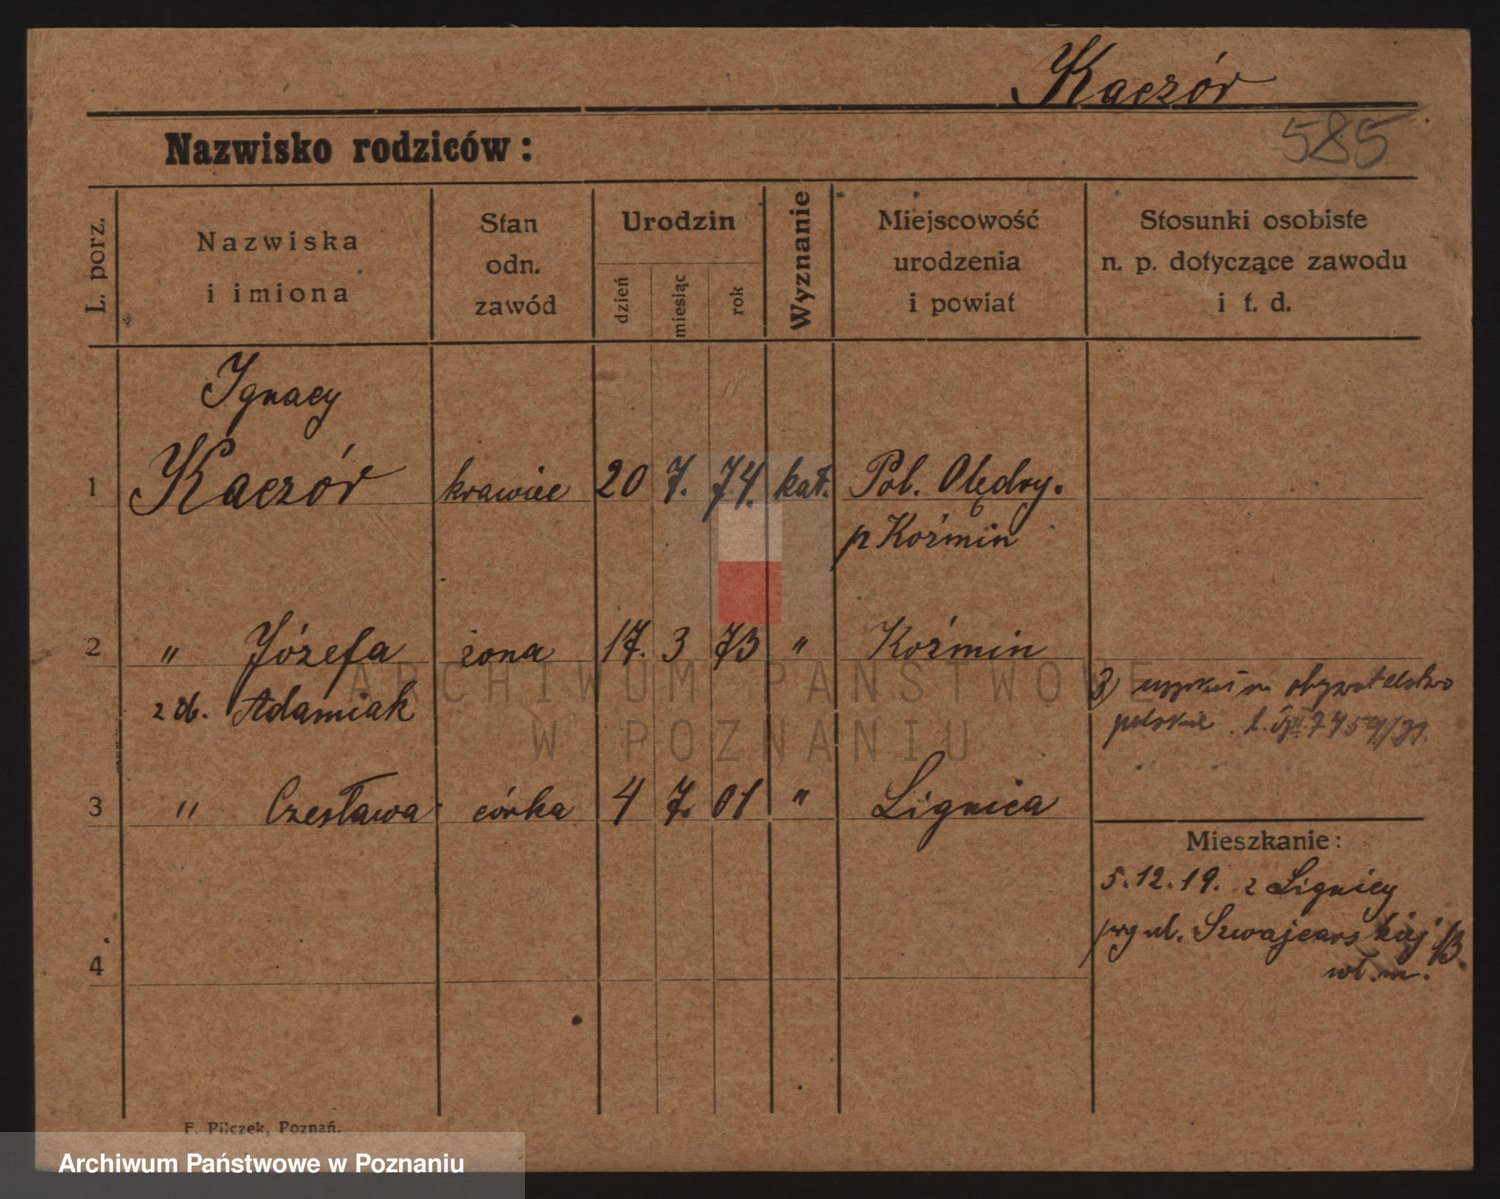 Kaczór
585
Nazwisko rodziców:
L. porz.
Nazwiska
i imiona
Stan
odn.
zawód
Urodzin
dzień
miesiąc
rok
Wyznanie
Miejscowość
urodzenia
i powiat
Stosunki osobiste
n. p. dotyczące zawodu
i t. d.
Ignacy
1 Kaczór krawiec 20 7. 74. kat. Pol. Olędry.
p Koźmin
2 " Józefa żona 17. 3 73 " Koźmin
z d. Adamiak
3) obywatelstwo
polskie
3 " Czesława córka 4 7. 01 " Lignica
Mieszkanie:
5.12.19. z Lignicy
ul. Szwajcarskiej 13
wł. m.
4
F. Pilczek, Poznań.
ARCHIWUM PAŃSTWOWE
W POZNANIU
Archiwum Państwowe w Poznaniu